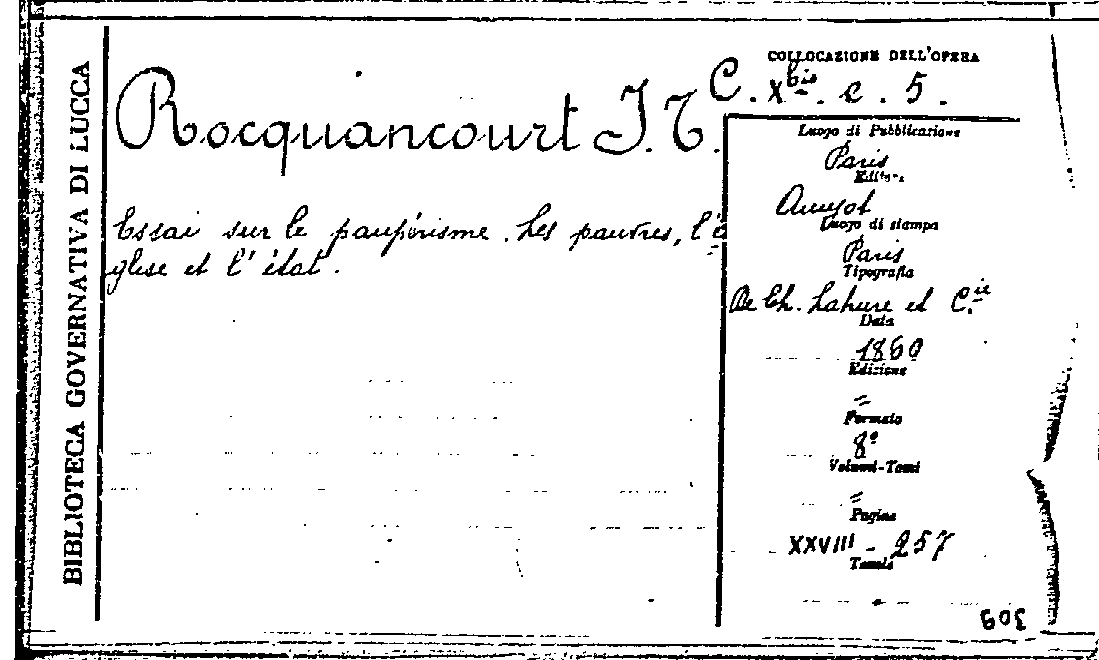 BIBLIOTECA GOVERNATIVA DI LUCCA
Rocquancourt J. T.
Essai sur le paupérisme. Les pauvres, l'é
glise et l'état.
COLLOCAZIONE DELL'OPERA
C. Xbis. e. 5.
Luogo di Pubblicazione
Paris
Editore
Amyot
Luogo di stampa
Paris
Tipografia
De Ch. Lahure et C.ie
Data
1860
Edizione
=
Formato
8°
Volumi-Tomi
=
Pagine
XXVIII - 257
Tavole
309